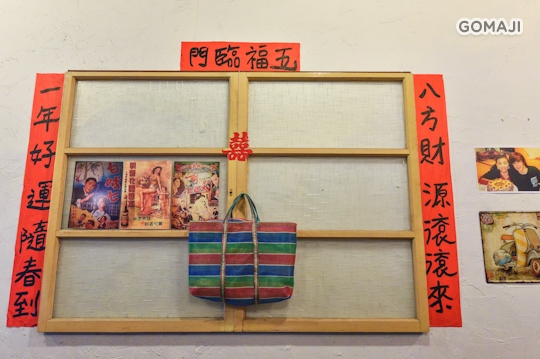 GOMAJI
門臨福五
八方財源滾滾來
一年好運隨春到
囍